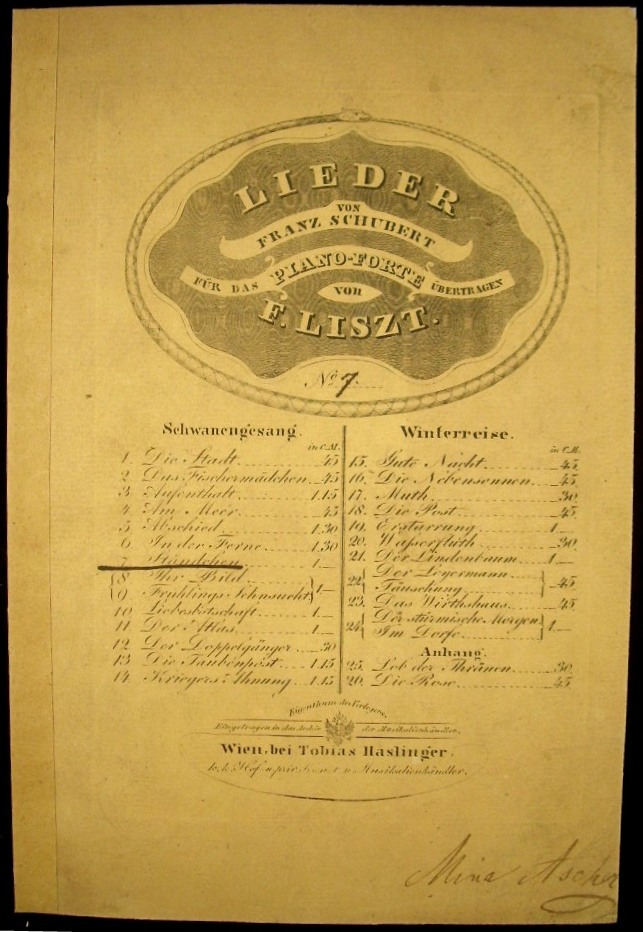 LIEDER
VON
FRANZ SCHUBERT
FÜR DAS PIANO-FORTE ÜBERTRAGEN
von
F. LISZT.
No. 7.
Schwanengesang.
in C.M.
1. Die Stadt 45
2. Das Fischermädchen 45
3. Aufenthalt 1.15
4. Am Meer 45
5. Abschied 1.30
6. In der Ferne 1.30
7. Ständchen 1.—
8. Ihr Bild
9. Frühlings Sehnsucht 1—
10. Liebesbotschaft 1.—
11. Der Atlas 1.—
12. Der Doppelgänger 30
13. Die Taubenpost 1.15
14. Kriegers Ahnung 1.15
Winterreise.
in C.M.
15. Gute Nacht 45
16. Die Nebensonnen 45
17. Muth 30
18. Die Post 45
19. Erstarrung 1.—
20. Wasserfluth 30
21. Der Lindenbaum 1.—
22. Der Leyermann
Täuschung 45
23. Das Wirthshaus 45
24. Der stürmische Morgen
Im Dorfe 1.—
Anhang.
25. Lob der Thränen 30
26. Die Rose 45
Eigenthum des Verlegers.
Eingetragen in das Archiv der Musikalienhändler.
Wien, bei Tobias Haslinger.
k. k. Hof- u. priv. Kunst- u. Musikalienhändler.
Mina Ascher